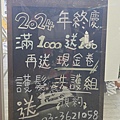 2024年終慶
滿2000送200
再送現金卷
護髮洗護組
送
02-3621058